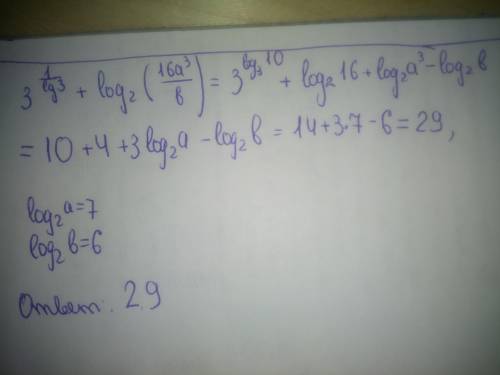 3^(1/lg3) + log₂(16a³/b) = 3^(log₃10) + log₂16 + log₂a³ - log₂b
= 10 + 4 + 3log₂a - log₂b = 14 + 3·7 - 6 = 29,
log₂a = 7
log₂b = 6
Ответ: 29